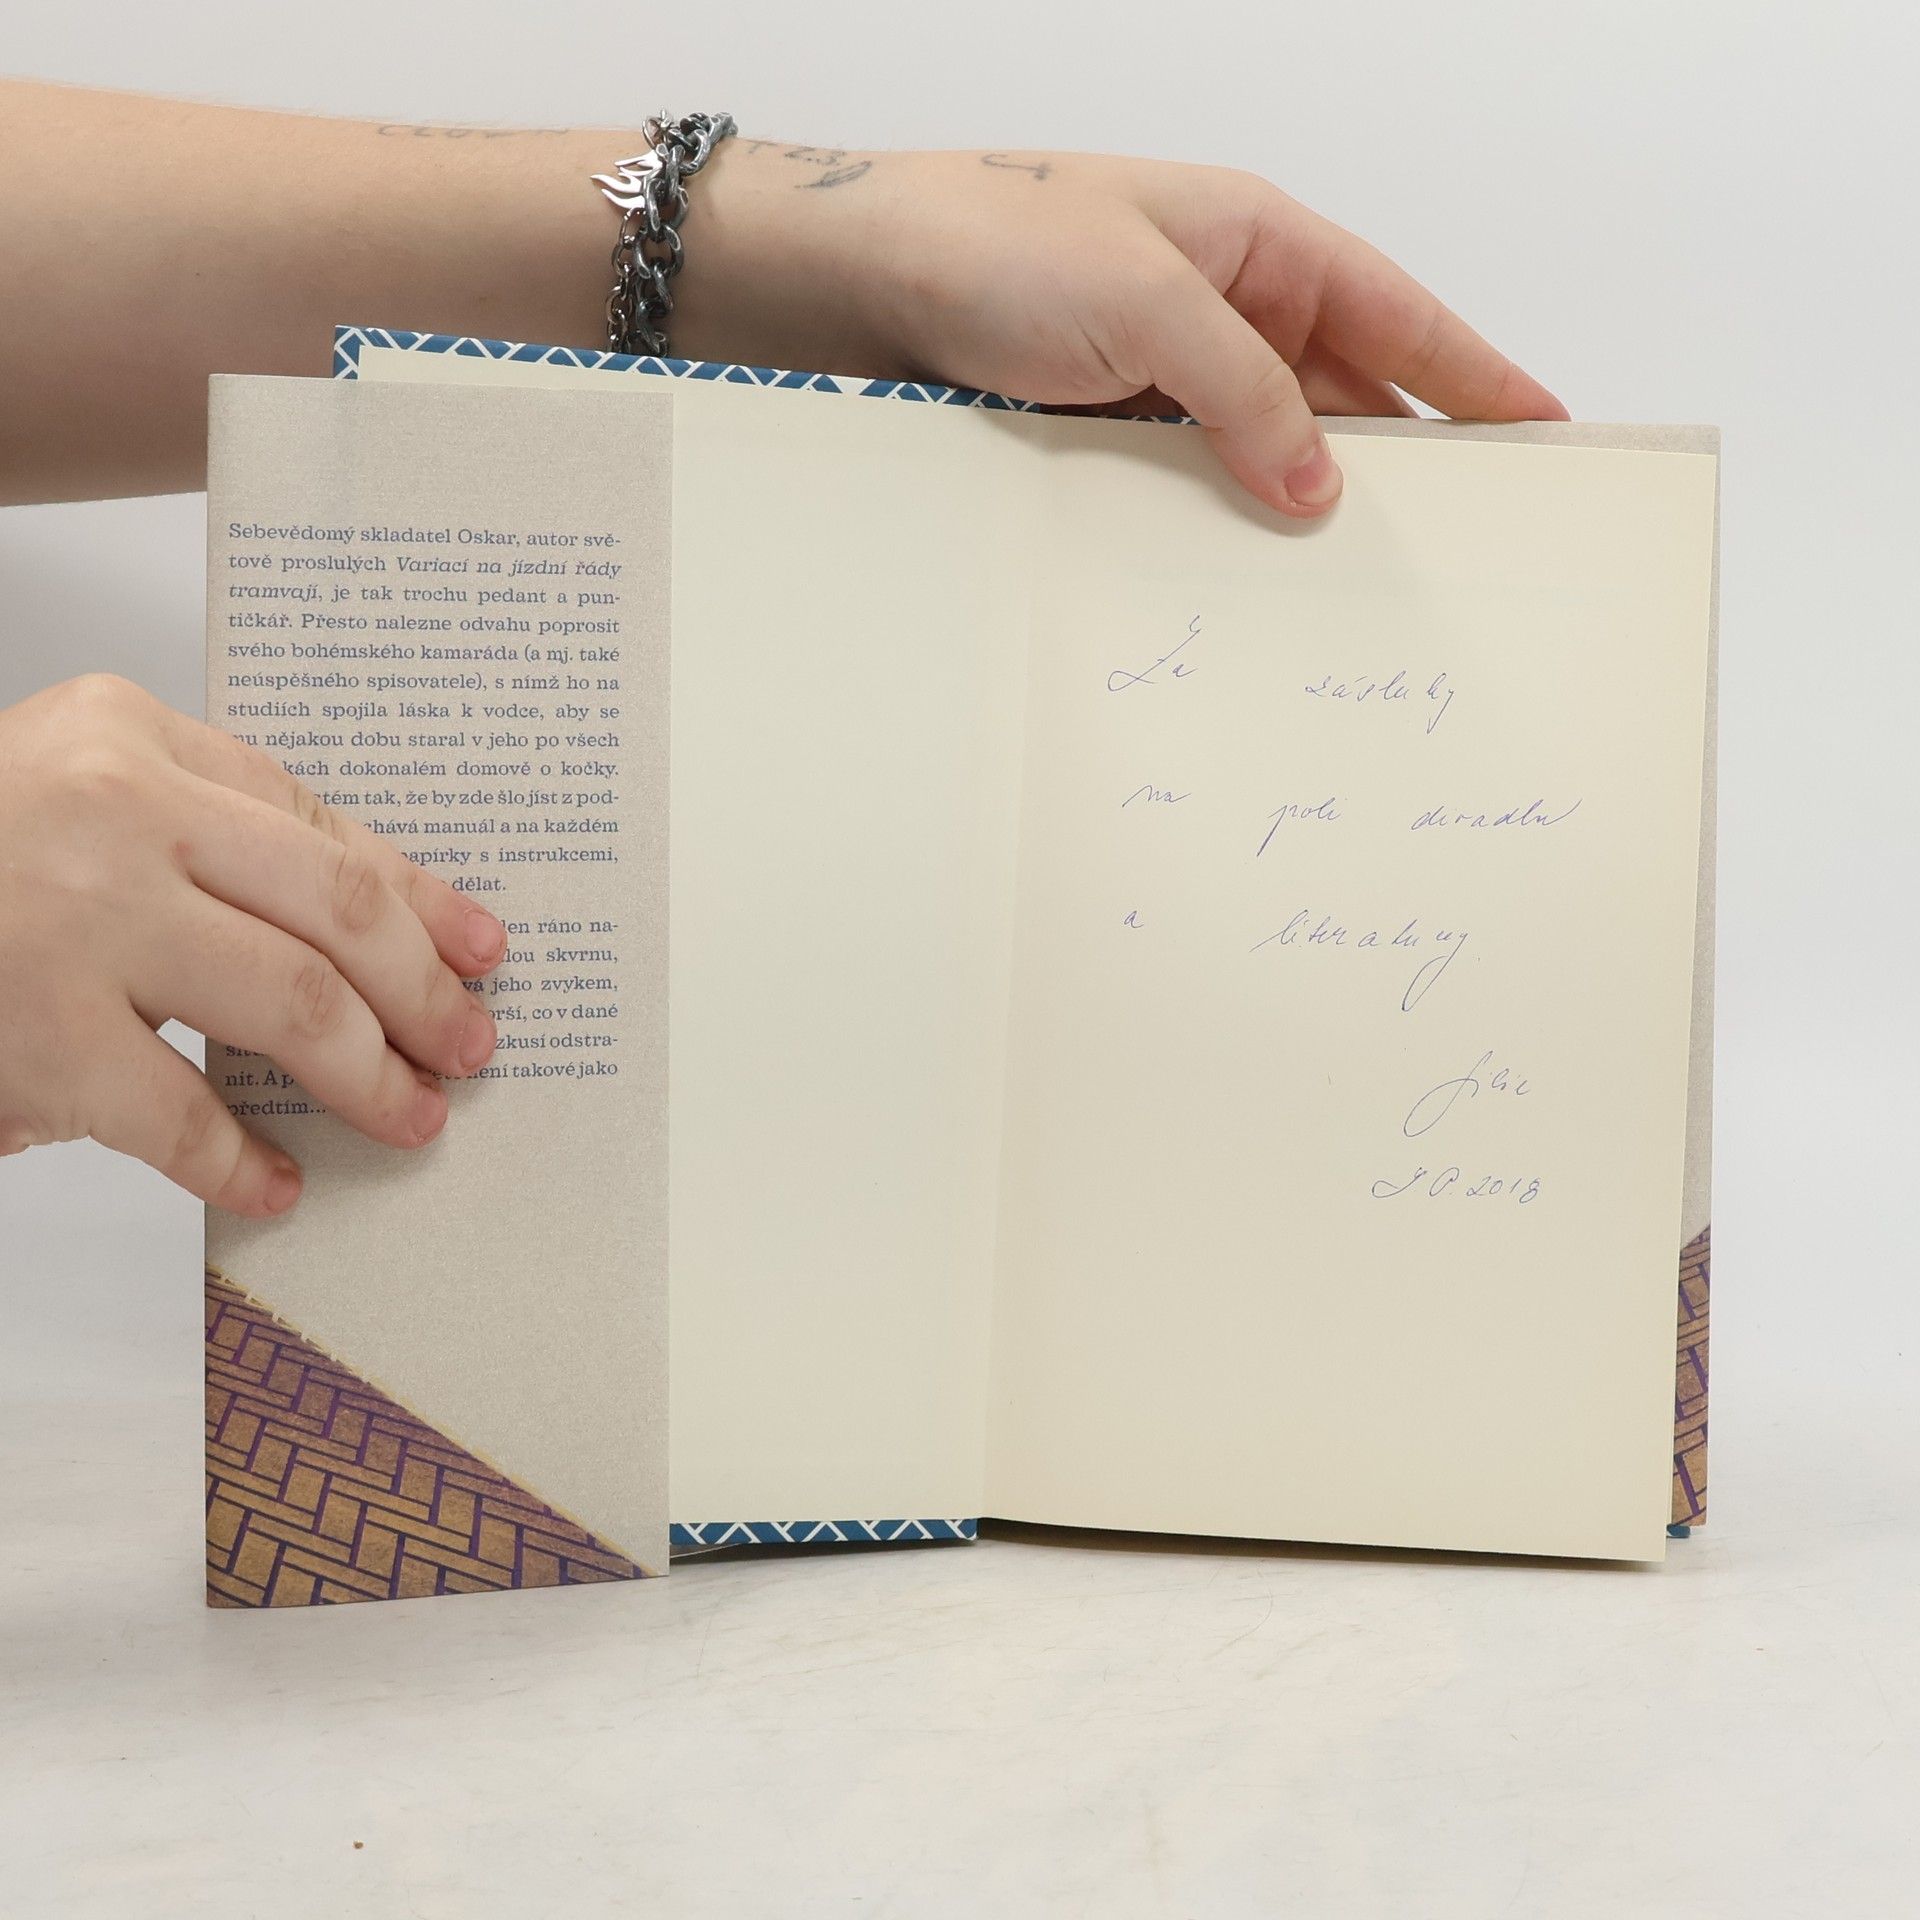 Sebevědomý skladatel Oskar, autor svě-
tově proslulých Variací na jízdní řády
tramvají, je tak trochu pedant a pun-
tičkář. Přesto nalezne odvahu poprosit
svého bohémského kamaráda (a mj. také
neúspěšného spisovatele), s nímž ho na
studiích spojila láska k vodce, aby se
mu nějakou dobu staral v jeho po všech
kách dokonalém domově o kočky.
tém tak, že by zde šlo jíst z pod-
chává manuál a na každém
papírky s instrukcemi,
dělat.
den ráno na-
lou skvrnu,
vá jeho zvykem,
orší, co v dané
zkusí odstra-
nit. A p není takové jako
předtím...
Za zásluhy
na poli divadla
a literatury.
P. 2018